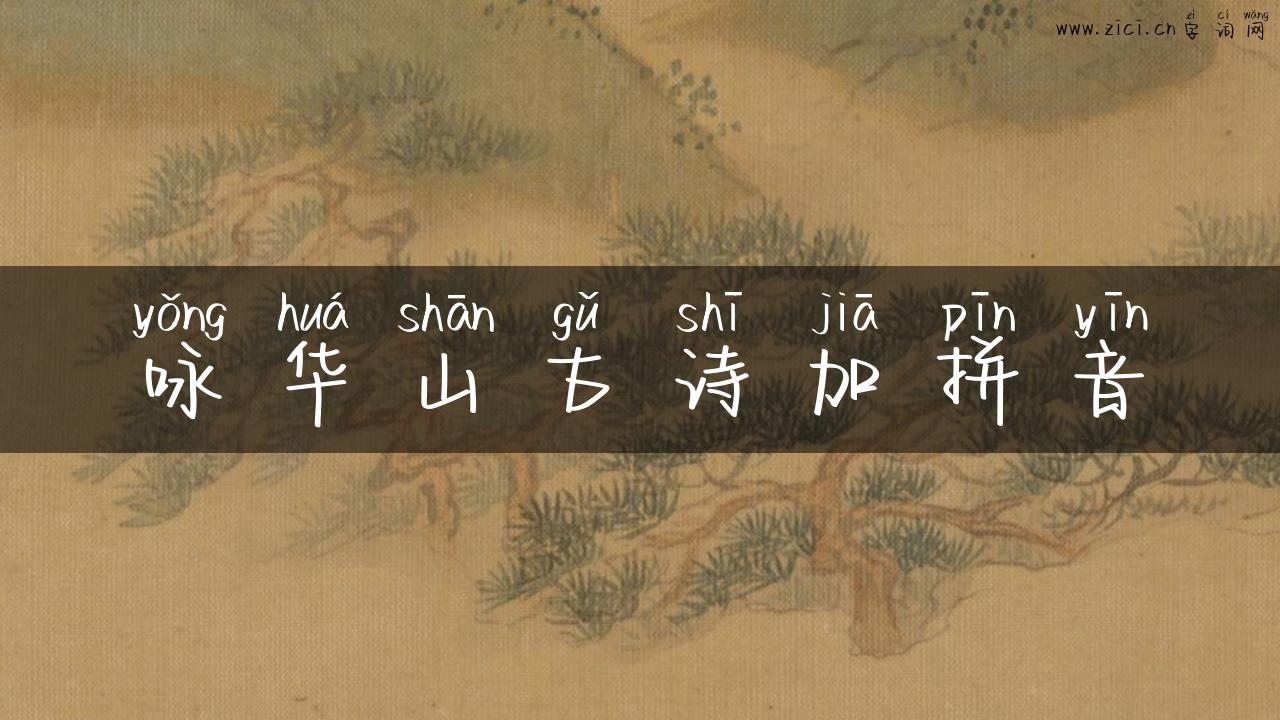 zì cí wǎng
www.zici.cn 字词网
yǒng huá shān gǔ shī jiā pīn yīn
咏华山古诗加拼音